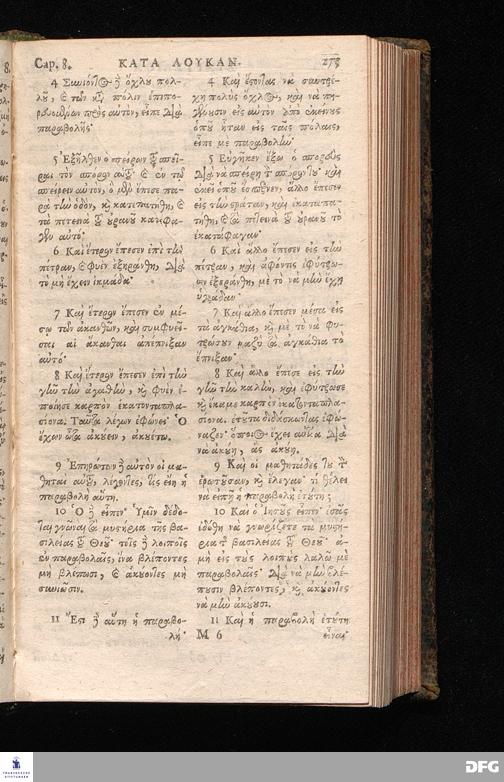 Cap. 8. ΚΑΤΑ ΛΟΥΚΑΝ. 275
4 Συνιόντος ὄχλου πολ-
λοῦ, καὶ τῶν κατὰ πόλιν ἐπιπο-
ρευομένων πρὸς αὐτὸν, εἶπε διὰ
παραβολῆς·
5 Ἐξῆλθεν ὁ σπείρων τοῦ σπεῖ-
ραι τὸν σπόρον αὑτοῦ. καὶ ἐν τῷ
σπείρειν αὐτὸν, ὃ μὲν ἔπεσε πα-
ρὰ τὴν ὁδὸν, καὶ κατεπατήθη, καὶ
τὰ πετεινὰ τοῦ οὐρανοῦ κατέφα-
γεν αὐτό·
6 Καὶ ἕτερον ἔπεσεν ἐπὶ τὴν
πέτραν, καὶ φυὲν ἐξηράνθη, διὰ
τὸ μὴ ἔχειν ἰκμάδα·
7 Καὶ ἕτερον ἔπεσεν ἐν μέ-
σῳ τῶν ἀκανθῶν, καὶ συμφυεῖ-
σαι αἱ ἄκανθαι ἀπέπνιξαν
αὐτό·
8 Καὶ ἕτερον ἔπεσεν ἐπὶ τὴν
γῆν τὴν ἀγαθὴν, καὶ φυὲν ἐ-
ποίησε καρπὸν ἑκατονταπλα-
σίονα. Ταῦτα λέγων ἐφώνει· Ὁ
ἔχων ὦτα ἀκούειν, ἀκουέτω.
9 Ἐπηρώτων δὲ αὐτὸν οἱ μα-
θηταὶ αὐτοῦ, λέγοντες, τίς εἴη ἡ
παραβολὴ αὕτη.
10 Ὁ δὲ εἶπεν· Ὑμῖν δέδο-
ται γνῶναι τὰ μυστήρια τῆς βα-
σιλείας τοῦ Θεοῦ· τοῖς δὲ λοιποῖς
ἐν παραβολαῖς, ἵνα βλέποντες
μὴ βλέπωσι, καὶ ἀκούοντες μὴ
συνιῶσιν.
11 Ἔστι δὲ αὕτη ἡ παραβο-
λή·
4 Καὶ ἔστωντας νὰ συντρέ-
χῃ πολὺς ὄχλος, καὶ νὰ πη-
γαίνουσιν εἰς αὐτὸν ἀπὸ ἐκείνους
ὁποῦ ἦταν εἰς ταῖς πόλαις,
εἶπε με παραβολὴν·
5 Εὐγῆκεν ἔξω ὁ σπορεὺς
διὰ νὰ σπείρῃ τὸν σπόρον του· καὶ
ἐκεῖ ὁποῦ ἔσπερνεν, ἄλλο ἔπεσεν
εἰς τὴν στράταν, καὶ ἐκαταπα-
τήθη, καὶ τὰ πετεινὰ τοῦ οὐρανοῦ τὸ
ἐκατάφαγαν·
6 Καὶ ἄλλο ἔπεσεν εἰς τὴν
πέτραν, καὶ ἀφόντις ἐφύτρω-
σεν ἐξεράνθη, με τὸ νὰ μὴν ἔχῃ
ὑγράδαν·
7 Καὶ ἄλλο ἔπεσεν μέσα εἰς
τὰ ἀγκάθια, καὶ με τὸ νὰ φυ-
τρώσουν μαζὺ τὰ ἀγκάθια τὸ
ἔπνιξαν·
8 Καὶ ἄλλο ἔπεσε εἰς τὴν
γῆν τὴν καλὴν, καὶ ἐφύτρωσε
καὶ ἔκαμε καρπὸν ἑκατονταπλα-
σίονα. ἐτοῦτα διδάσκωντας ἐφώ-
ναζεν· ὁποῖος ἔχει αὐτία διὰ
νὰ ἀκούῃ, ἂς ἀκούῃ.
9 Καὶ οἱ μαθητάδες του τὸν
ἐρωτοῦσαν, καὶ ἔλεγαν· τί θέλει
νὰ εἰπῇ ἡ παραβολὴ ἐτούτη;
10 Καὶ ὁ Ἰησοῦς εἶπεν· ἐσᾶς
ἐδόθη νὰ γνωρίζετε τὰ μυστή-
ρια τῆς βασιλείας τοῦ Θεοῦ· ἀ-
μὴ εἰς τοὺς λοιποὺς λαλῶ με
παραβολαῖς· διὰ νὰ μὴν βλέ-
πουσιν βλέποντες, καὶ ἀκούοντες
νὰ μὴν ἀκούουσι.
11 Καὶ ἡ παραβολὴ ἐτούτη
M 6 εἶναι·
DFG